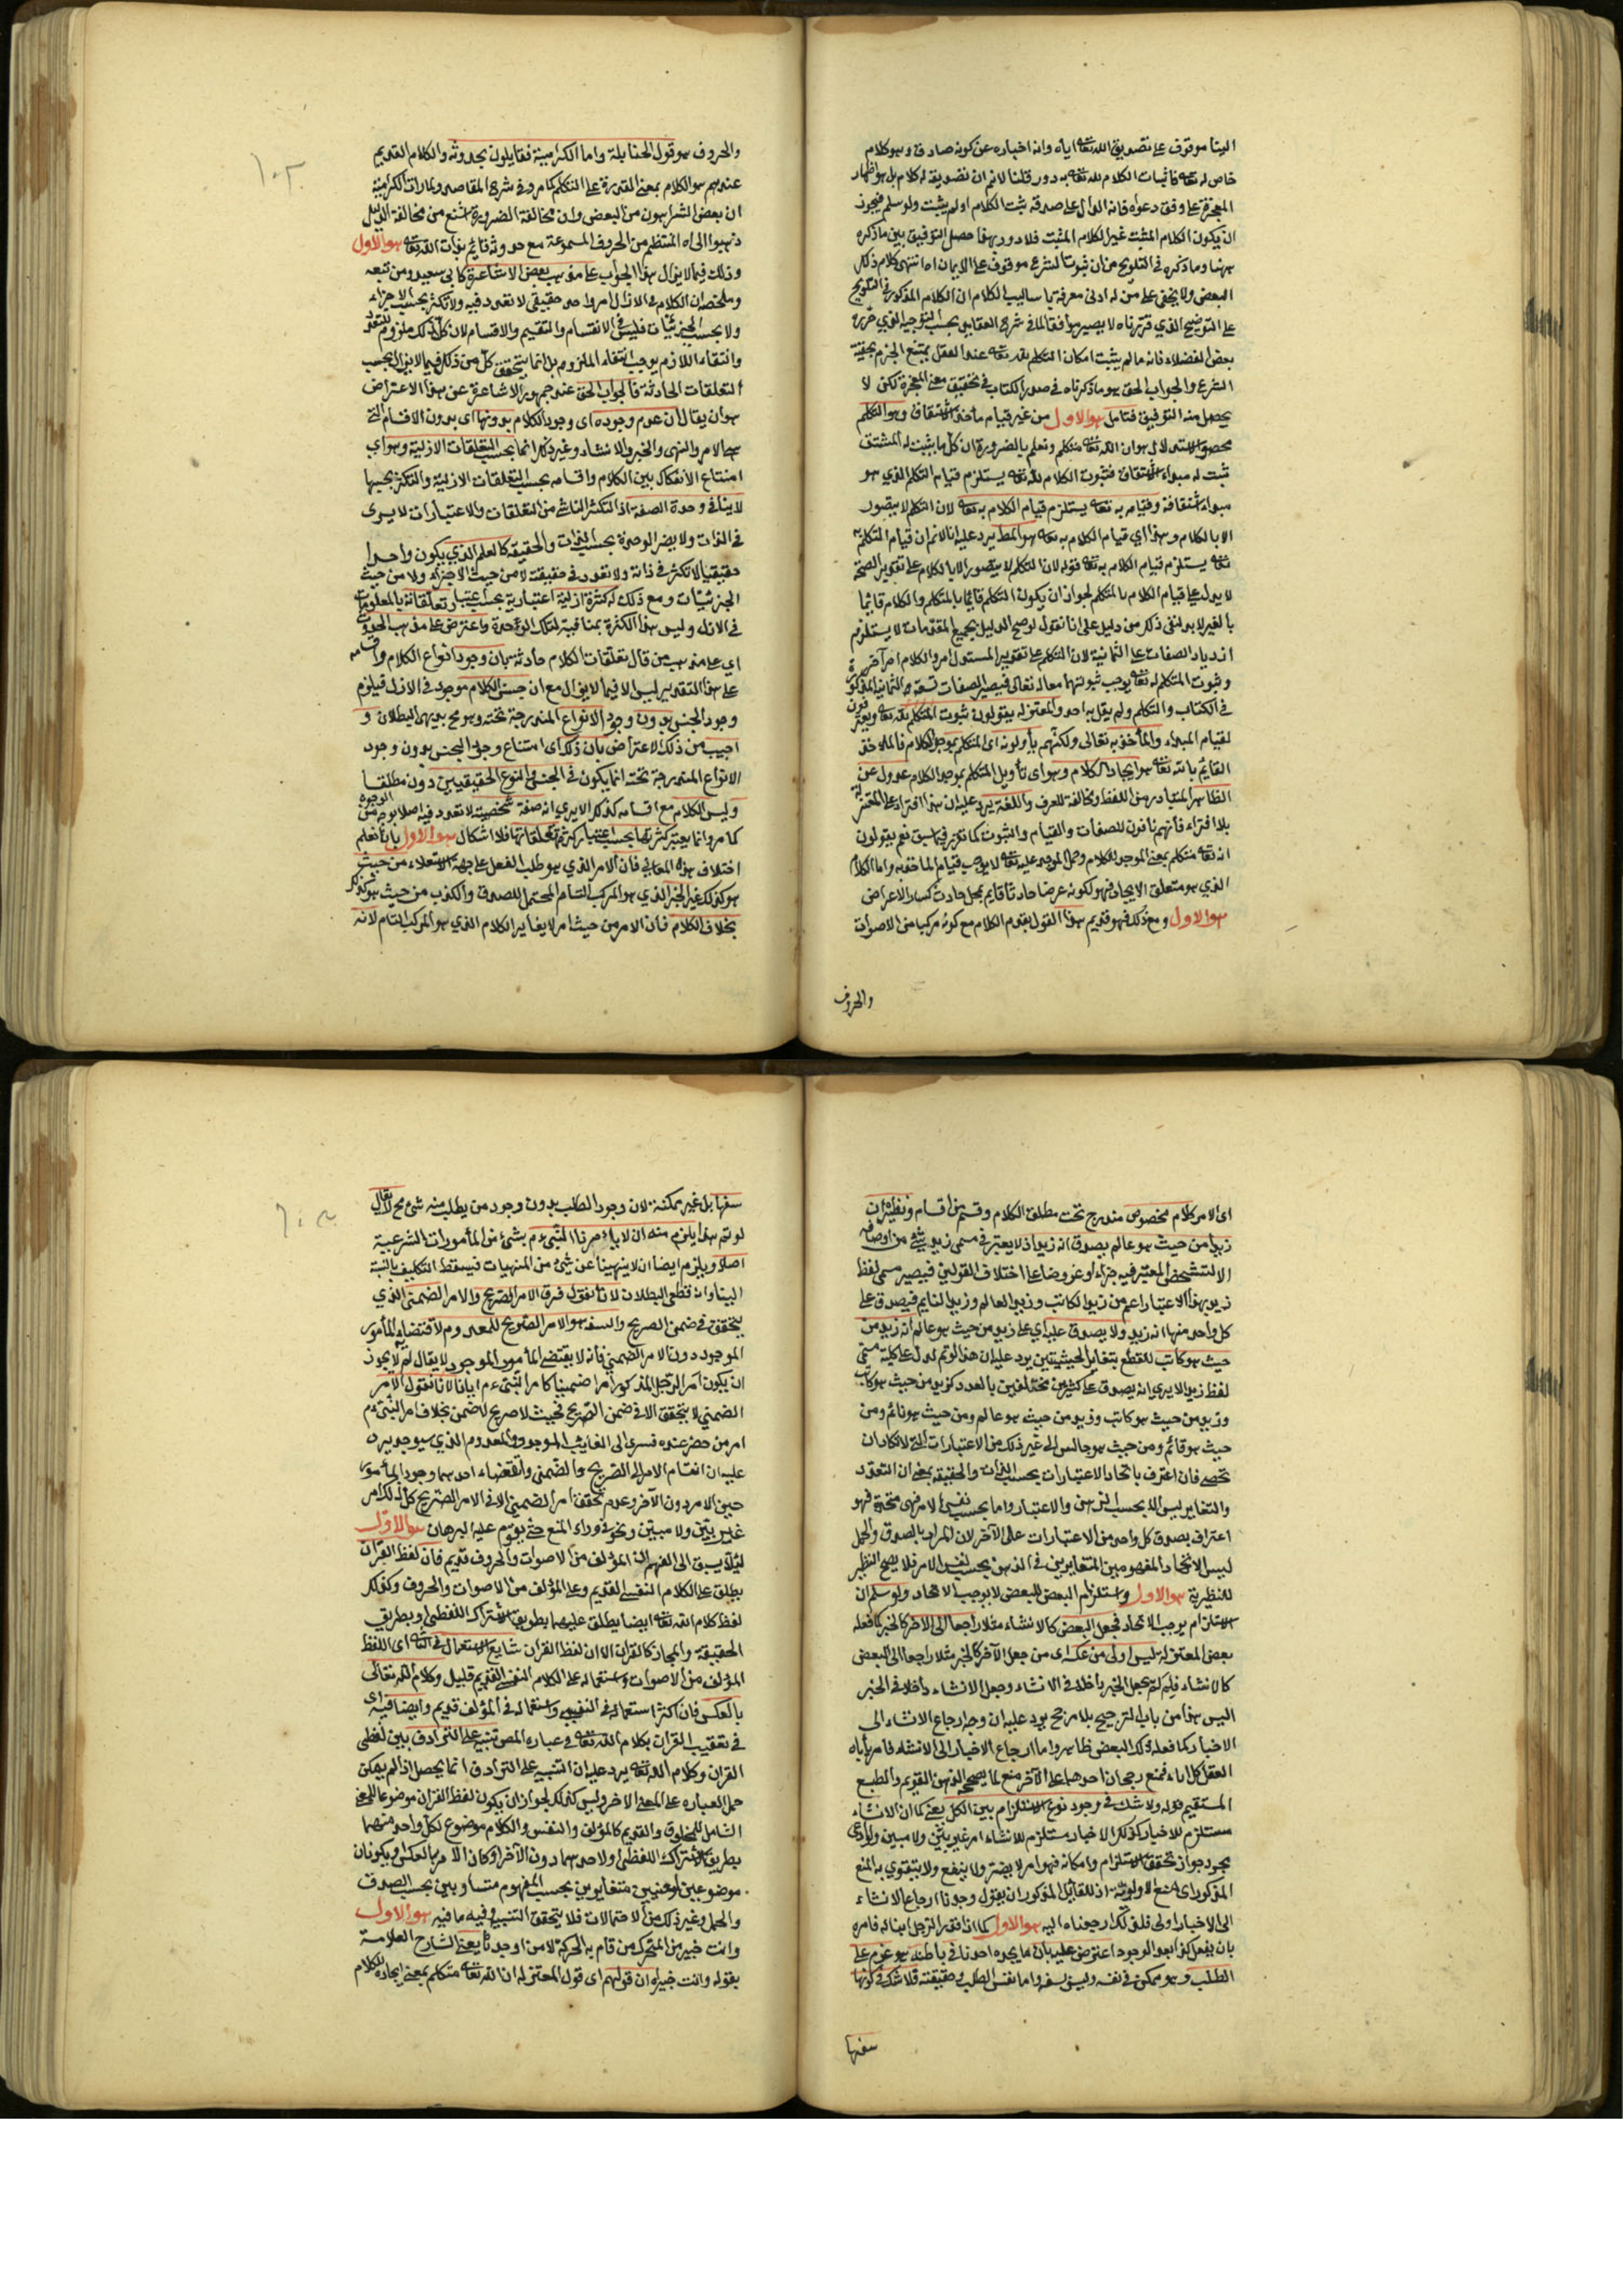 الينا موقوف على تصديق الله تعه اياه وانه اخباره عن كونه صادق وهو كلام
خاص له تعه فاثبات الكلام لله تعه به دور قلنا لانم ان تصديقه له كلام بل هو اظهار
المعجزة على وفق دعواه فانه الدال على صدقه ثبت الكلام اولم يثبت ولو سلم فيجوز
ان يكون الكلام المثبت غير الكلام المثبت فلا دور بهذا حصل التوفيق بين ما ذكره
ههنا وما ذكره في التلويح من ان ثبوت الشرع موقوف على الايمان اه انتهى كلام ذلك
البعض ولا يخفى على من له ادنى معرفة باساليب الكلام ان الكلام المذكور في التلويح
على التوضيح الذي قررناه لا يصير موافقا لما في شرح العقايد بحسب التوجيه الذي حرره
بعض الفضلاء فانه ما لم يثبت امكان التكلم لله تعه عند العقل يمتنع الجزم بحقية
الشرع والجواب الحق هو ما ذكرناه في صدر الكتاب في تحقيق معنى المعجزة لكن لا
يحصل منه التوفيق فتامل هو الاول من غير قيام مأخذ الاشتقاق وهو التكلم
محصول الاستدلال هو ان الله تعه متكلم ونعلم بالضرورة ان كل ما يثبت له المشتق
ثبت له مبداء الاشتقاق فثبوت الكلام لله تعه يستلزم قيام التكلم الذي هو
مبداء اشتقاقه وقيامه به تعه يستلزم قيام الكلام به تعه لان التكلم لا يتصور
الا بالكلام وهذا اي قيام الكلام به تعه هو المط يرد عليه انا لانم ان قيام المتكلم به
تعه يستلزم قيام الكلام به تعه قوله لان التكلم لا يتصور الا بالكلام على تقدير الصحة
لا يدل على قيام الكلام بالمتكلم لجواز ان يكون التكلم قائما بالمتكلم والكلام قائما
بالغير لا بد لنفي ذكر من دليل على انا نقول لو صح الدليل بجميع المقدمات لا يستلزم
ازدياد الصفات على الثمانية لان التكلم على تقدير المستدل امر والكلام امر آخر
وثبوت المتكلم له تعه يوجب ثبوتهما معا له تعالى فيصير الصفات تسعة مع الثمانية المذكورة
في الكتاب والتكلم ولم يقل به احد والمعتزلة يقولون ثبوت المتكلم لله تعه ويعترفون
لقيام المبداء والمأخذ به تعالى ولكنهم يأولونه اي المتكلم بموجد الكلام فالماخذ
القايم بالله تعه هو ايجاد الكلام وهو اي تأويل المتكلم بموجد الكلام عدول عن
الظاهر المتبادر من اللفظ ومخالفة للعرف واللغة يرد عليه ان هذا افتراء على المعتزلة
بلا افتراء فانهم نافون للصفات والقيام والثبوت كما تقرر فيما سبق نعم يقولون
انه تعه متكلم بمعنى الموجد للكلام وحمل الموجد عليه تعه لا يوجب قيام الماخذ به واما الكلام
الذي هو متعلق الايجاد فهو لكونه عرضا حادثا قايم بمحل حادث كسائر الاعراض
هو الاول ومع ذلك فهو قديم هذا القول بقدم الكلام مع كونه مركبا من الاصوات
والحروف
والحروف هو قول الحنابلة واما الكرامية فقايلون بحدوثه والكلام القديم
عندهم هو الكلام بمعنى القدرة على التكلم كما مر وفي شرح المقاصد ولما رات الكرامية
ان بعض الشر اهون من البعض وان مخالفة الضرورة اشنع من مخالفة الدليل
ذهبوا الى اه المنتظم من الحروف المسموعة مع حدوثه قايم بذات الله تعه هو الاول
وذلك فيما لا يزال هذا الجواب على مذهب بعض الاشاعرة كابي سعيد ومن تبعه
وملخصه ان الكلام في الازل امر واحد حقيقي لا تعدد فيه ولا تكثر بحسب الاجزاء
ولا بحسب الجزئيات فليس في الانقسام والتقييم والاقسام لان كل ذلك ملزوم للتعدد
وانتفاء اللازم يوجب انتفاء الملزوم بل انما يتحقق كل من ذلك فيما لا يزال بحسب
التعلقات الحادثة فالجواب الحق عند جمهور الاشاعرة عن هذا الاعتراض
هو ان يقال ان عدم وجوده اي وجود الكلام بدونها اي بدون الاقسام التي
هي الامر والنهي والخبر والانشاء وغير ذلك انما بحسب التعلقات الازلية وهو اي
امتناع الانفكاك بين الكلام واقسامه بحسب التعلقات الازلية والتكثر بحسبها
لا ينافي وحدة الصفة اذ التكثر الناشي من التعلقات والاعتبارات لا يسرى
في الذات ولا يضر الوحدة بحسب الذات والحقيقة كالعلم الذي يكون واحدا
حقيقيا لا تكثر في ذاته ولا تعدد في حقيقته لا من حيث الاجزاء ولا من حيث
الجزئيات ومع ذلك له كثرة ازلية اعتبارية بحسب اعتبار تعلقاته بالمعلومات
في الازل وليس هذا الكثرة بمنافية لتلك الوحدة واعترض على مذهب الحدوث
اي على مذهب من قال تعلقات الكلام حادثة بان وجود انواع الكلام واقسامه
على هذا التقدير ليس الا فيما لا يزال مع ان جنس الكلام موجود في الازل فيلزم
وجود الجنس بدون وجود الانواع المندرجة تحته وهو مح بديهي البطلان و
اجيب من ذلك الاعتراض بان ذلك اي امتناع وجود الجنس بدون وجود
الانواع المندرجة تحته انما يكون في الجنس والنوع الحقيقيين دون مطلقا
وليس الكلام مع اقسامه كذلك الا يرى انه صفة شخصية لا تعدد فيه اصلا بوجه من الوجوه
كما مر وانما يعتبر كثرتها بحسب اعتبار كثرة تعلقاتها فلا اشكال هو الاول بانا نعلم
اختلاف هذه المعاني فان الامر الذي هو طلب الفعل على جهة الاستعلاء من حيث
هو كذلك غير الخبر الذي هو المركب التام المحتمل للصدق والكذب من حيث هو كذلك
بخلاف الكلام فان الامر من حيث امر لا يغاير الكلام الذي هو المركب التام لانه
اى الامر كلام مخصوص مندرج تحت مطلق الكلام وقسم من اقسامه ونظيره ان
زيدا من حيث هو عالم يصدق انه زيد اذ لا يعتبر في مسمى زيد شئ من اوصافه
الا التشخص المعتبر فيه جزاء او عروضا على اختلاف القولين فيصير مسمى لفظ
زيد بهذا الاعتبار اعم من زيد الكاتب وزيد العالم وزيد النايم فيصدق على
كل واحد منها انه زيد ولا يصدق عليه اي على زيد من حيث هو عالم انه زيد من
حيث هو كاتب للقطع بتغاير الحيثيتين يرد عليه ان هذا لو تم لدل على كلية مسمى
لفظ زيد الا يرى انه يصدق على كثيرين مختلفين بالعدد كزيد من حيث هو كاتب
وزيد من حيث هو كاتب وزيد من حيث هو عالم ومن حيث هو نائم ومن
حيث هو قائم ومن حيث هو جالس الى غير ذلك من الاعتبارات التي لا تكاد ان
تحصى فان اعترف باتحاد الاعتبارات بحسب الذات والحقيقة بمعنى ان التعدد
والتغاير ليس الا بحسب الذهن والاعتبار واما بحسب نفس الامر فهي متحدة فهو
اعتراف بصدق كل واحد من الاعتبارات على الآخر لان المراد بالصدق والحمل
ليس الا اتحاد المفهومين المتغايرين في الذهن بحسب نفس الامر فلا يصح النظير
للنظيرية هو الاول واستلزام البعض للبعض لا يوجب الاتحاد ولو سلم ان
الاستلزام يوجب الاتحاد فجعل البعض كالانشاء مثلا راجعا الى الآخر كالخبر كما فعله
بعض المعتزلة ليس اولى من عكسه اى من جعل الآخر كالخبر مثلا راجعا الى البعض
كالانشاء فلم لم يجعل الخبر داخلا في الانشاء وجعل الانشاء داخلا في الخبر
اليس هذا من باب الترجيح بلا مرجح يرد عليه ان وجه ارجاع الانشاء الى
الاخبار كما فعله ذلك البعض ظاهر واما ارجاع الاخبار الى الانشاء فامر يأباه
العقل كل اباء فمنع رجحان احدهما على الآخر منع لما يصححه الذهن القويم والطبع
المستقيم قوله ولا شك في وجود نوع الاستلزام بين الكل يعني كما ان الانشاء
مستلزم للاخبار كذلك الاخبار مستلزم للانشاء امر غير بيّن ولا مبين ولو ادعى
مجرد جواز تحقق الاستلزام وامكانه فهو امر لا يضر ولا ينفع ولا يتقوي به المنع
المذكور اى منع الاولوية اذ للقائل المذكور ان يقول وجدنا ارجاع الانشاء
الى الاخبار اولى فلذلك ارجعناه اليه هو الاول كما اذا قدر الرجل ابنا له فامره
بان يفعل كذا بعد الوجود اعترض عليه بان ما يجده احدنا في باطنه هو عزم على
الطلب وهو ممكن في نفسه وليس بسفه واما نفس الطلب وحقيقته فلا شك في كونها
سفها
سفها بل غير ممكنة لان وجود الطلب بدون وجود من يطلب منه شئ مح لا يقال
لو تم هذا يلزم منه ان لا يأمرنا النبي عم بشئ من المأمورات الشرعية
اصلا ويلزم ايضا ان لا ينهينا عن شئ من المنهيات فيسقط التكليف بالنسبة
الينا وانه قطعي البطلان لانا نقول فرق الامر الصريح والامر الضمني الذي
يتحقق في ضمن الصريح والسفه هو الامر الصريح للمعدوم لاقتضائه المأمور
الموجود دون الامر الضمني فانه لا يقتضي المأمور الموجود لا يقال لم لا يجوز
ان يكون امر الرجل المذكور امرا ضمنيا كامر النبي عم ايانا لانا نقول الامر
الضمني لا يتحقق الا في ضمن الصريح فحيث لا صريح لا ضمن بخلاف امر النبي عم
امر من حضر عنده فسرى الى الغايب الموجود والمعدوم الذي سيوجد يرد
عليه ان انقسام الامر الى الصريح والضمني واقتضاء احدهما وجود المأمور
حين الامر دون الآخر وعدم تحقق امر الضمني الا في الامر الصريح كل ذلك امر
غير بيّن ولا مبيّن ونحن في وراء المنع حتى يقوم عليه البرهان هو الاول
لئلا يسبق الى الفهم ان المؤلف من الاصوات والحروف قديم فان لفظ القرآن
يطلق على الكلام النفسي القديم وعلى المؤلف من الاصوات والحروف وكذلك
لفظ كلام الله تعه ايضا يطلق عليهما بطريق الاشتراك اللفظي او بطريق
الحقيقة والمجاز كالقران الا ان لفظ القران شايع الاستعمال في الثاني اى اللفظ
المؤلف من الاصوات واستعماله على الكلام النفسي القديم قليل وكلام الله تعالى
بالعكس فان اكثر استعماله في النفسي واستعماله في المؤلف قديم وايضا فيه اى
في تعقيب القران بكلام الله تعه في عباره المص تنبيه على الترادف بين لفظى
القران وكلام الله تعه يرد عليه ان التنبيه على الترادف انما يحصل اذا لم يمكن
حمل العباره على المعنى الاخر وليس كذلك لجواز ان يكون لفظ القران موضوعا للمعنى
الشامل للمخلوق والقديم كالمؤلف والنفسي والكلام موضوع لكل واحد منهما
بطريق الاشتراك اللفظي او لاحدهما دون الآخر او كان الامر بالعكس او يكونان
موضوعين لمعنيين متغايرين بحسب المفهوم متساويين بحسب الصدق
والحمل وغير ذلك من الاحتمالات فلا يتحقق التنبيه ففيه ما فيه هو الاول
وانت خبير من المتحرك من قام به الحركة لا من اوجدها يعني الشارح العلامة
بقوله وانت خبير ان قولهم اى قول المعتزلة ان الله تعه متكلم بمعنى ايجاده للكلام